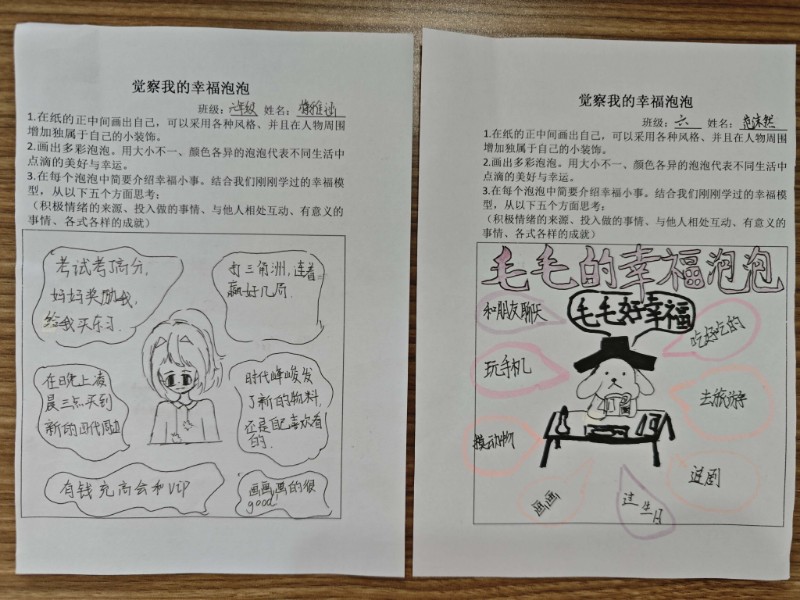 觉察我的幸福泡泡
班级：六年级 姓名：
1.在纸的正中间画出自己，可以采用各种风格、并且在人物周围
增加独属于自己的小装饰。
2.画出多彩泡泡。用大小不一、颜色各异的泡泡代表不同生活中
点滴的美好与幸运。
3.在每个泡泡中简要介绍幸福小事。结合我们刚刚学过的幸福模
型，从以下五个方面思考：
（积极情绪的来源、投入做的事情、与他人相处互动、有意义的
事情、各式各样的成就）
考试考了高分，
妈妈奖励我，
给我买乐习.
打三角洲，连着
赢好几局.
在晚上凌
晨三点买到
新的四代周边
时代峰峻发
了新的物料，
还是自己喜欢看
的.
有钱充高会和VIP
画画画的很
good!
觉察我的幸福泡泡
班级：六 姓名：
1.在纸的正中间画出自己，可以采用各种风格、并且在人物周围
增加独属于自己的小装饰。
2.画出多彩泡泡。用大小不一、颜色各异的泡泡代表不同生活中
点滴的美好与幸运。
3.在每个泡泡中简要介绍幸福小事。结合我们刚刚学过的幸福模
型，从以下五个方面思考：
（积极情绪的来源、投入做的事情、与他人相处互动、有意义的
事情、各式各样的成就）
毛毛的幸福泡泡
和朋友聊天
毛毛好幸福
吃好吃的
玩手机
去旅游
摸动物
追剧
画画
过生日